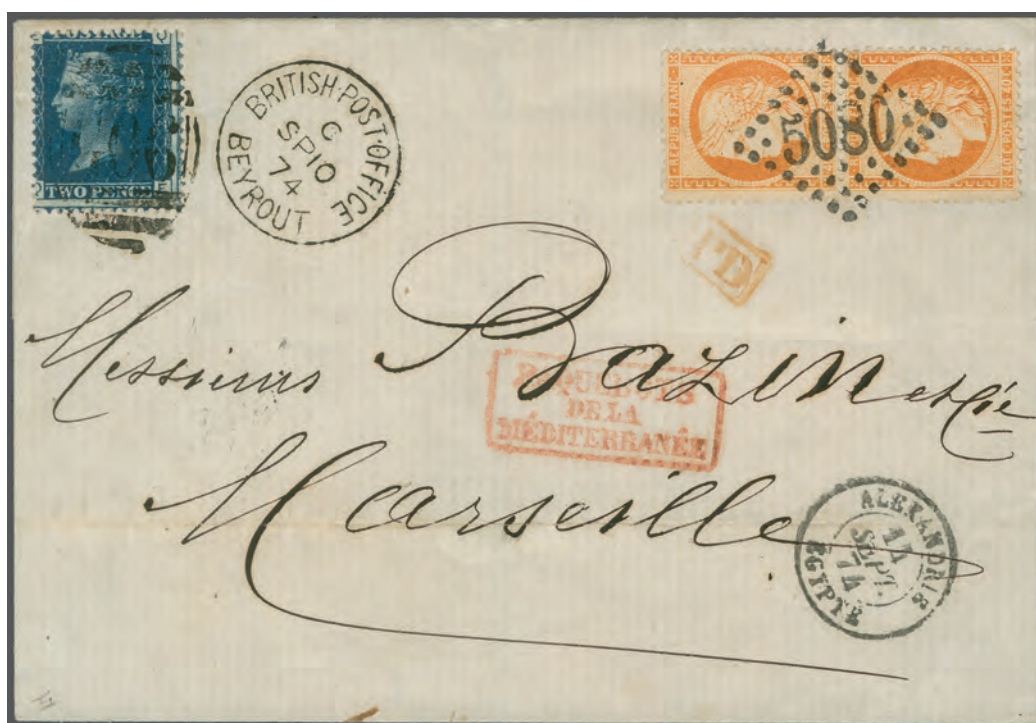 TWO PENCE
BRITISH·POST·OFFICE
C
SP10
74
BEYROUT
REPUB·FRANC
5080
PD
Messieurs BAZIN et Cie
PAQUEBOTS
DE LA
MÉDITERRANÉE
Marseille
ALEXANDRIE
14
SEPT.
74
EGYPTE